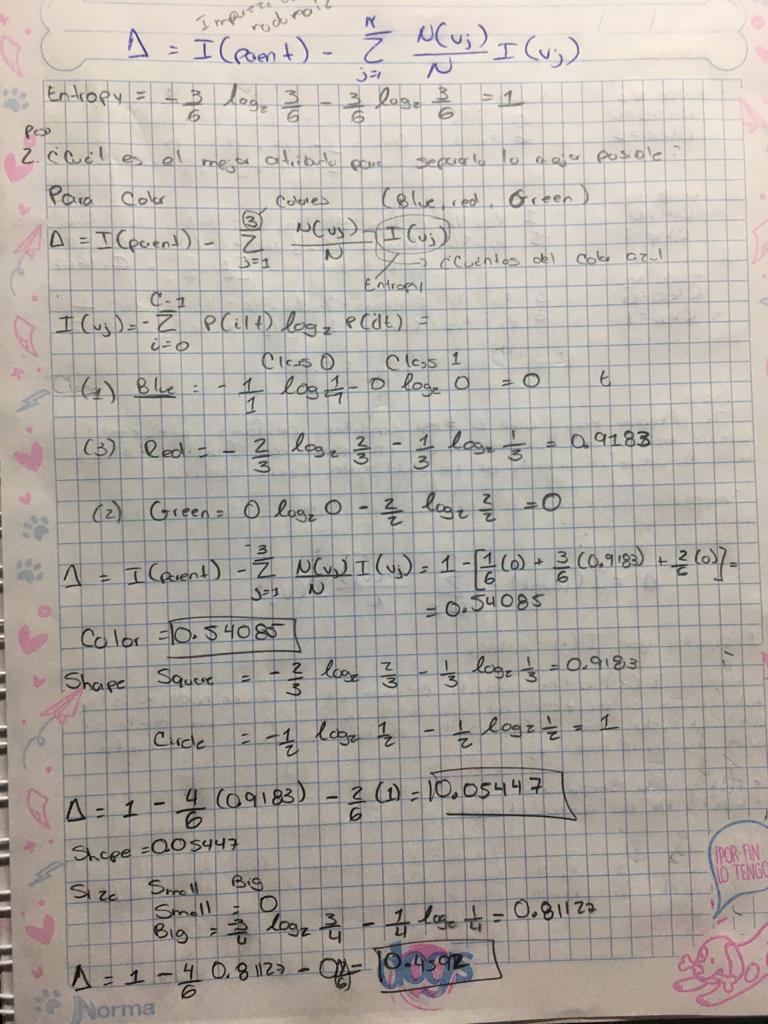 Impureza
Δ = I(parent) - Σ_{j=1}^{N} N(vj)/N I(vj)
Entropy = - 3/6 log2 3/6 - 3/6 log2 3/6 = 1
2. ¿Cuál es el mejor atributo para separarlo lo mejor posible?
Para Color Colores (Blue, red, Green)
Δ = I(parent) - Σ_{j=1}^{3} N(vj)/N I(vj)
→ del color azul
Entropy
I(vj) = - Σ_{i=0}^{C-1} P(i|t) log2 P(i|t) =
Class 0 Class 1
(1) Blue : - 1/1 log 1/1 - 0 log2 0 = 0 t
(3) Red = - 2/3 log2 2/3 - 1/3 log2 1/3 = 0.9183
(2) Green = 0 log2 0 - 2/2 log2 2/2 = 0
Δ = I(parent) - Σ_{j=1}^{3} N(vj)/N I(vj) = 1 - [1/6 (0) + 3/6 (0.9183) + 2/6 (0)] =
= 0.54085
Color = 0.54085
Shape Square = - 2/3 log2 2/3 - 1/3 log2 1/3 = 0.9183
Circle = - 1/2 log2 1/2 - 1/2 log2 1/2 = 1
Δ = 1 - 4/6 (0.9183) - 2/6 (1) = 0.05447
Shape = 0.05447
Size Small Big
Small = 0
Big = 3/4 log2 3/4 - 1/4 log2 1/4 = 0.81127
Δ = 1 - 4/6 0.81127 -
¡POR FIN
LO TENGO
dogs
Norma